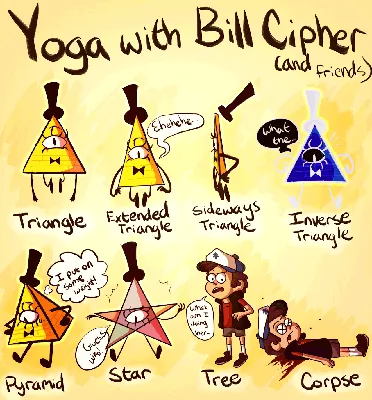 Yoga with Bill Cipher
(and friends)
Ehehehe.
what
the..
Triangle
Extended
Triangle
Sideways
Triangle
Inverse
Triangle
I put on
some
weight!
Guess
who.
what
am I
doing
here..
Pyramid
Star
Tree
Corpse